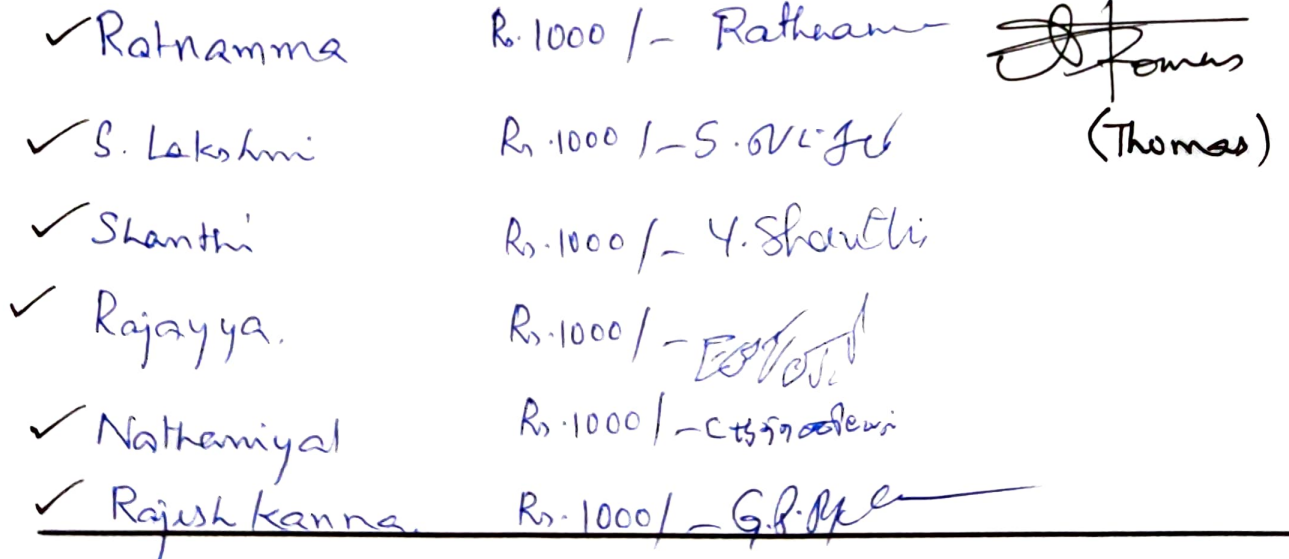 ✓ Ratnamma Rs. 1000/- Rathnam Thomas
✓ S. Lakshmi Rs. 1000/- S. (Thomas)
✓ Shanthi Rs. 1000/- Y. Shanthi
✓ Rajayya. Rs. 1000/-
✓ Nathaniyal Rs. 1000/-
✓ Rajesh Kanna. Rs. 1000/-